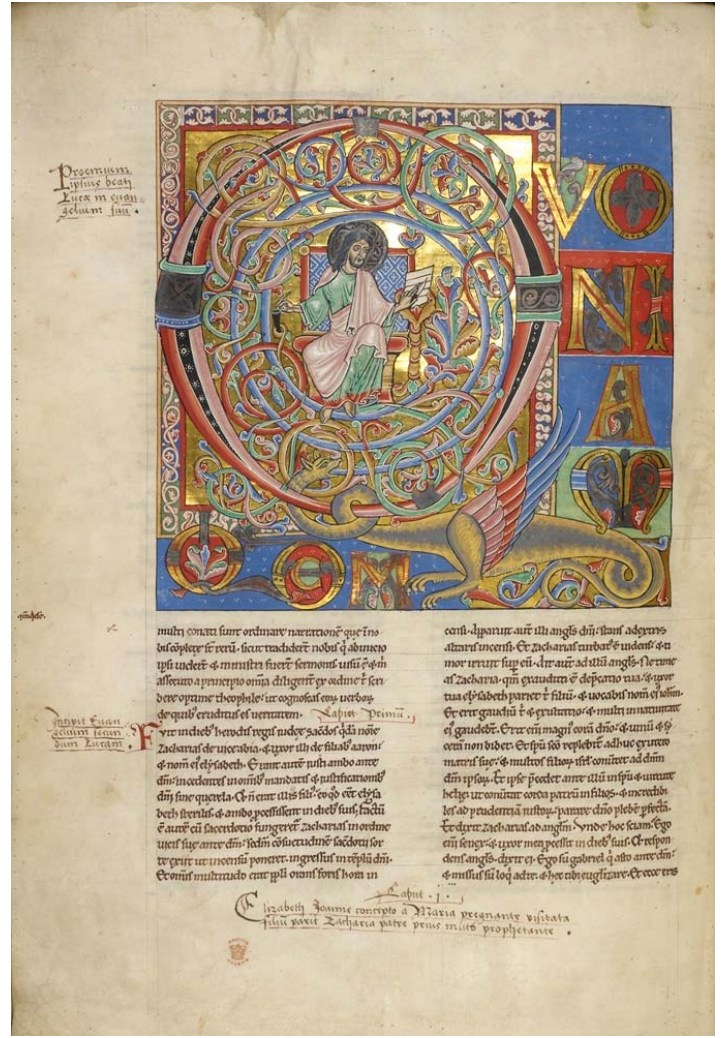 Proemium
ipsius beati
Lucæ in euan
gelium suu
Q VO
NI
A
M
multi conati sunt ordinare narrationē que ī no
bis cōplete st̄ rerū. sicut tradidert nobis q̄ ab inicio
ipsi uidert & ministri fuert sermonis. uisū ē & m̄
assecuto a principio omīa diligent̄ ex ordine t̄ scri
bere optime theophile. ut cognoscas eoꝝ uerboꝝ
de quib; eruditus es ueritatem. Caput Primū.
Incipit Euan
gelium secun
dum Lucam
Fvit in dieb; herodis regis iudeę sacdos q̄dā noīe
Zacharias de uice abia. & uxor illi de filiab; aaron.
& nom̄ ei elysabeth. Erant autē iusti ambo ante
dm̄. incedentes in omīb; mandatis & iustificationib;
dn̄i sine querela. Et n̄ erat illis fili. eo qđ eet elysa
beth sterilis. & ambo pcessissent in dieb; suis. Factū
ē autē cū sacerdotio fungeret̄ zacharias in ordine
uicis suę ante dm̄. scdm̄ cōsuetudinē sacdotii sor
te exiit ut incensū poneret. ingressus in tēplū dn̄i.
Et om̄is multitudo erat ppl̄i orans foris hora in
censi. Apparuit aut̄ illi angl̄s dn̄i. stans a dextris
altaris incensi. Et zacharias turbat̄ ē uidens. & ti
mor irruit sup eū. Ait aut̄ ad illū angl̄s. Ne time
as zacharia. qm̄ exaudita ē dep̄catio tua. & uxor
tua elysabeth pariet t̄ filiū. & uocabis nom̄ ei iohm̄.
Et erit gaudiū t̄ & exultatio. & multi in natiuitate
ei gaudebt̄. Erit eni magn̄ corā dn̄o. & uinū & sy
cerā non bibet. Et spū scō replebit̄ adhuc ex utero
matris suę. & multos filioꝝ isrl̄ conūtet ad dn̄m
dm̄ ipsoꝝ. Et ipse p̄cedet ante illū in spū & uirtute
helye. ut conūtat corda patrū in filios. & incredibi
les ad prudentiā iustoꝝ. parare dn̄o plebē pfectā.
Et dixit zacharias ad anglm̄. Vnde hoc sciam? Ego
eni senex. & uxor mea pcessit in dieb; suis. Et respon
dens angl̄s. dixit ei. Ego sū gabriel q̄ asto ante dm̄.
& missus sū loq̄ ad te. & hec tibi euglizare. Et ecce eris
Caput .1.
Elizabeth Joanne concepto a Maria pregnante visitata
filium parit Zacharia patre prius muto prophetante.